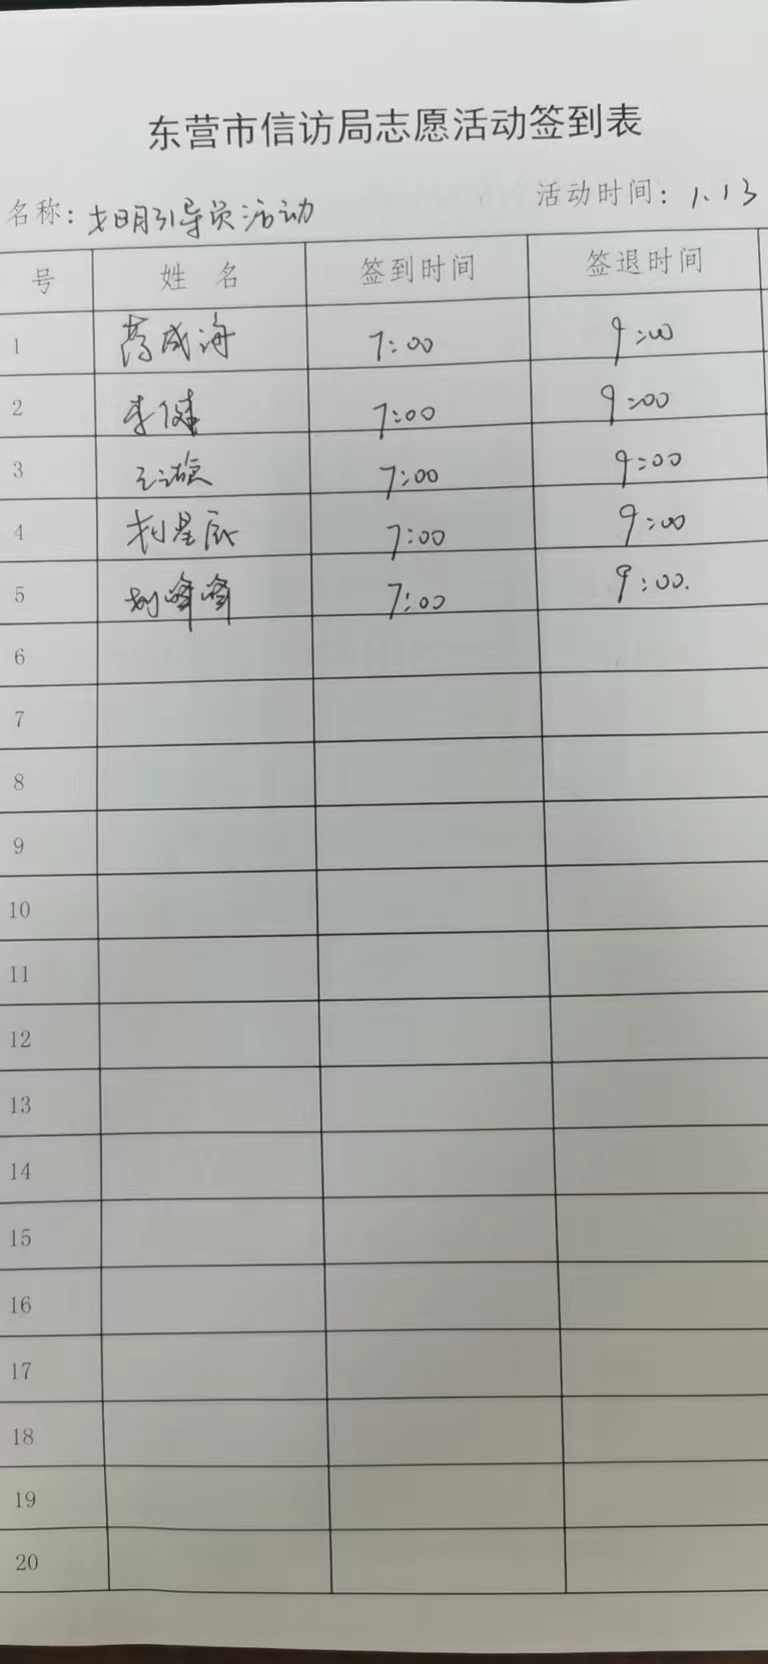 东营市信访局志愿活动签到表
名称：文明引导员活动 活动时间：1.13
号 姓 名 签到时间 签退时间
1 成海 7:00 9:00
2 李健 7:00 9:00
3 7:00 9:00
4 刘星辰 7:00 9:00
5 刘峰峰 7:00 9:00.
6
7
8
9
10
11
12
13
14
15
16
17
18
19
20